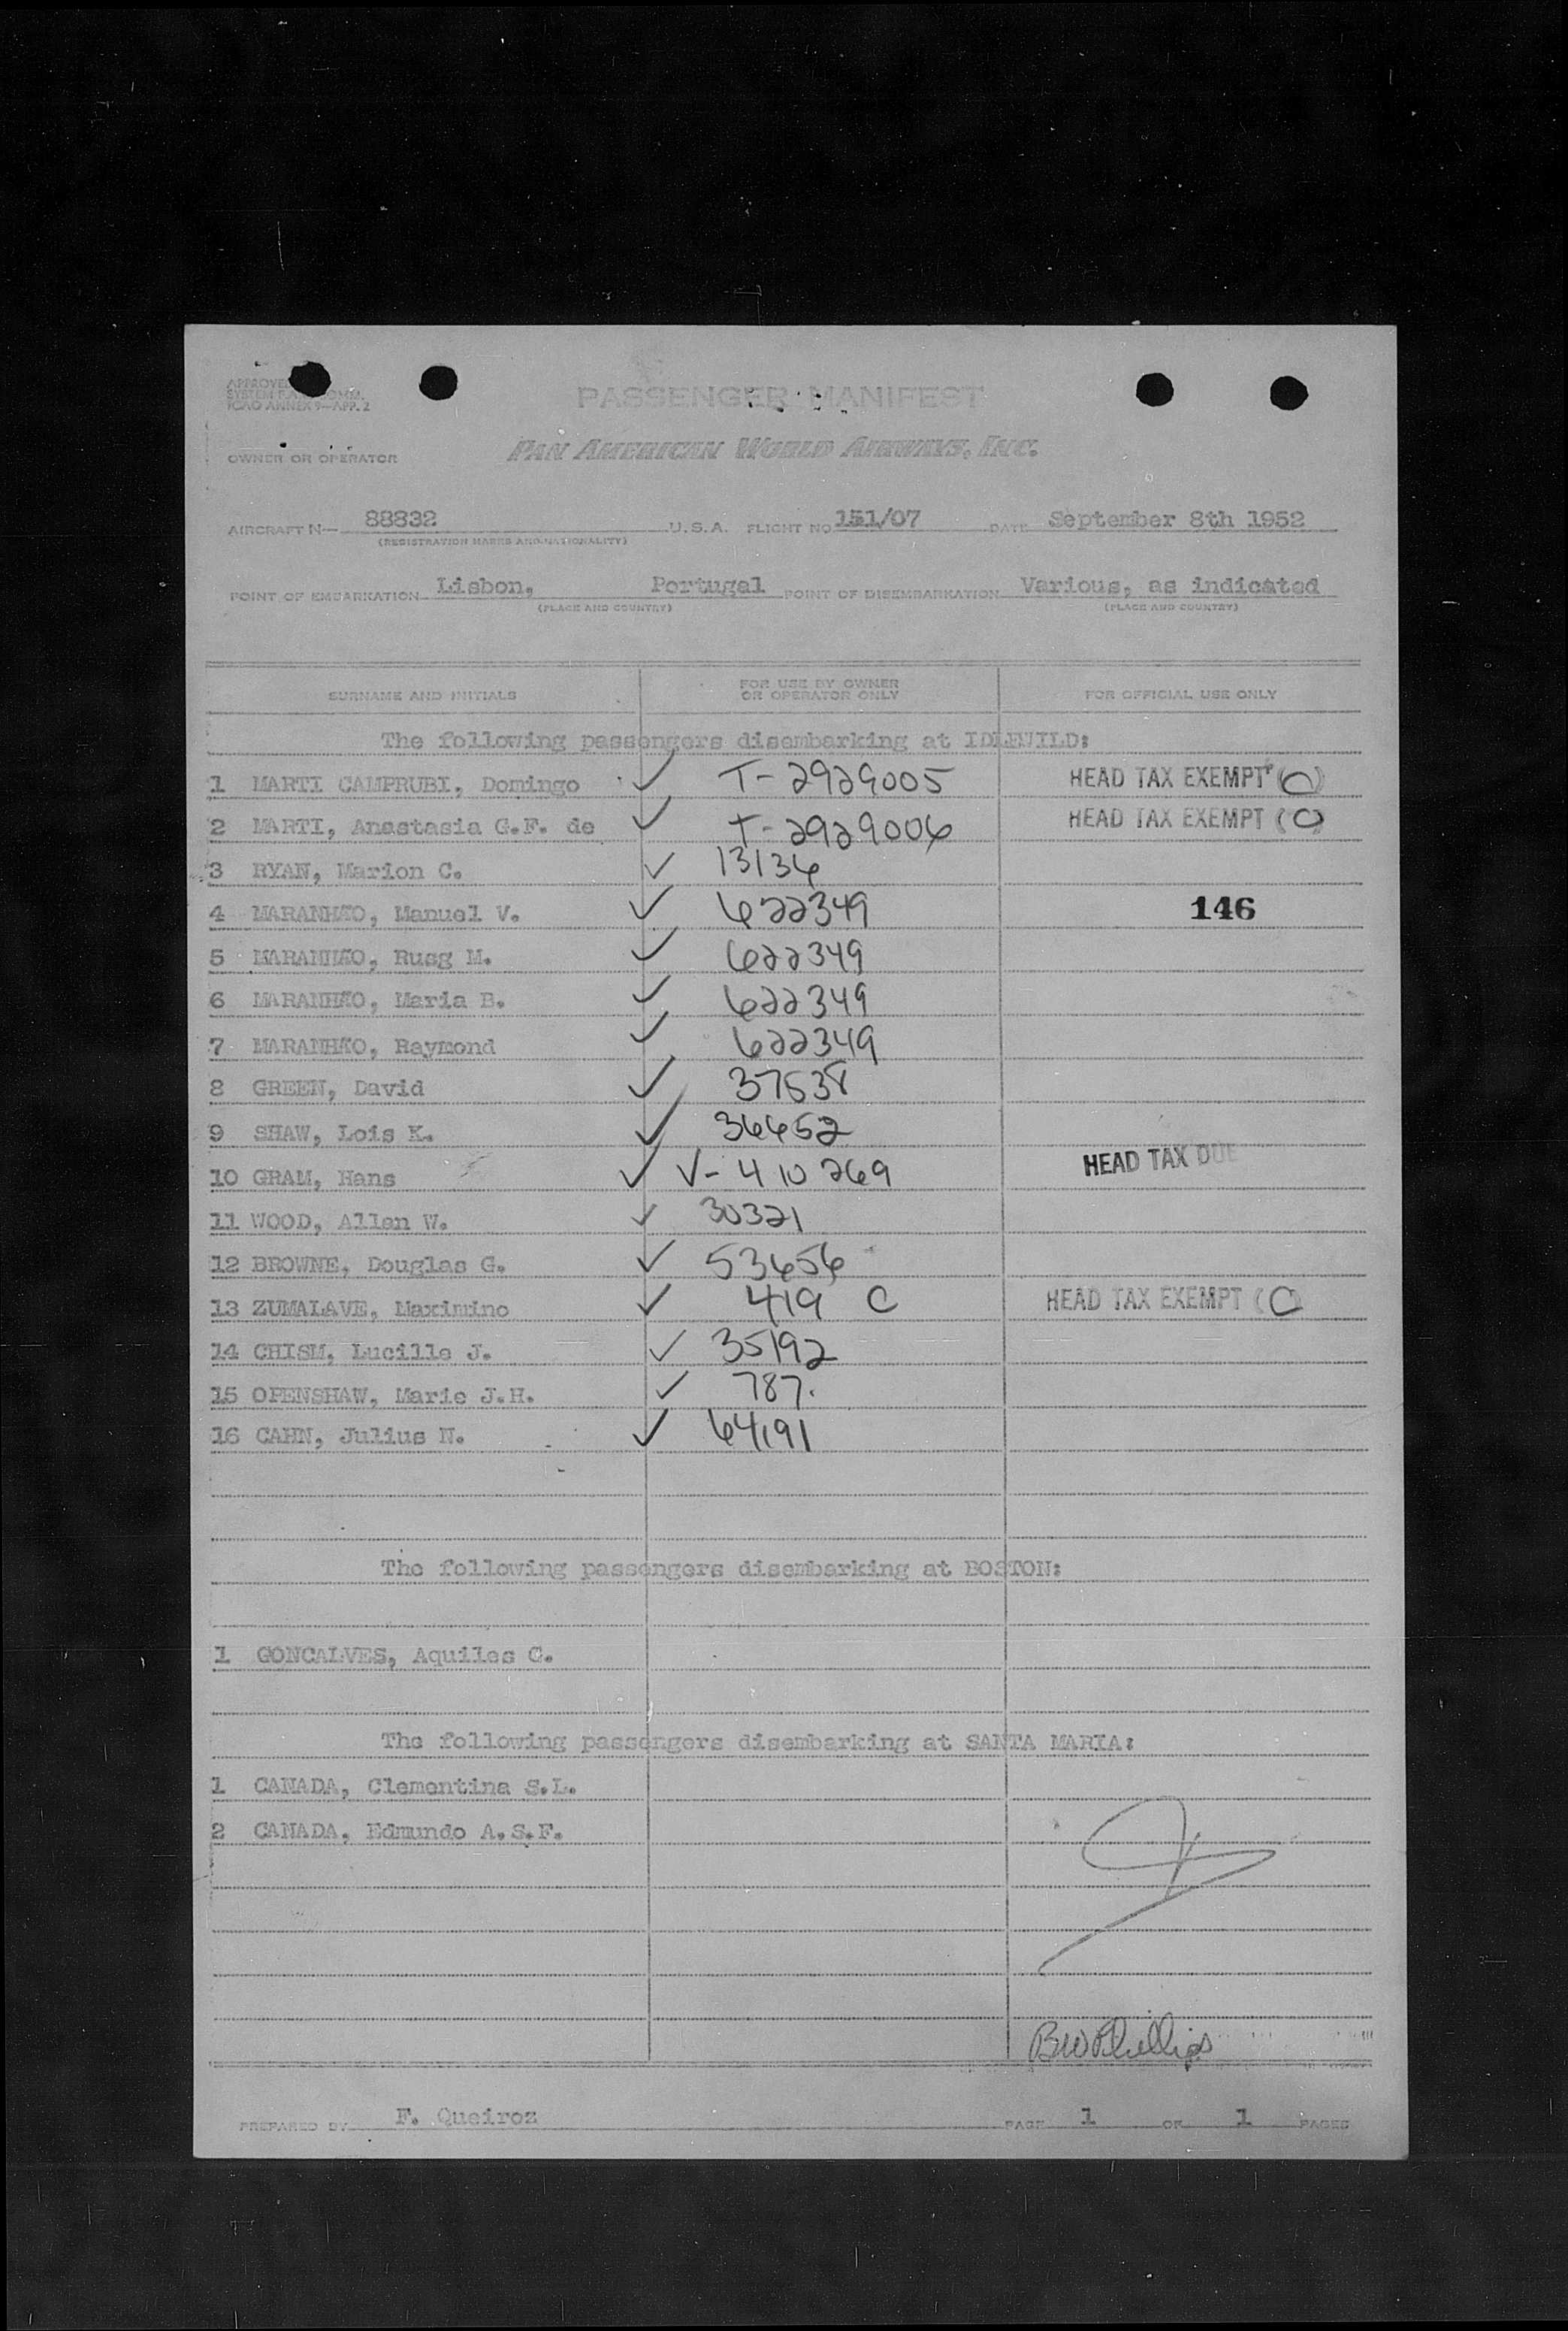 APPROVED
SYSTEM F.A.L. COMM.
ICAO ANNEX 9—APP. 2
PASSENGER MANIFEST
OWNER OR OPERATOR
PAN AMERICAN WORLD AIRWAYS, INC.
AIRCRAFT N— 88832 U.S.A. FLIGHT NO 151/07 DATE September 8th 1952
(REGISTRATION MARKS AND NATIONALITY)
POINT OF EMBARKATION Lisbon, Portugal POINT OF DISEMBARKATION Various, as indicated
(PLACE AND COUNTRY) (PLACE AND COUNTRY)
SURNAME AND INITIALS FOR USE BY OWNER OR OPERATOR ONLY FOR OFFICIAL USE ONLY
The following passengers disembarking at IDLEWILD:
1 MARTI CAMPRUBI, Domingo ✓ T-2929005 HEAD TAX EXEMPT (C)
2 MARTI, Anastasia G.F. de ✓ T-2929006 HEAD TAX EXEMPT (C)
3 RYAN, Marion C. ✓ 13136
4 MARANHÃO, Manuel V. ✓ 622349 146
5 MARANHÃO, Rusg M. ✓ 622349
6 MARANHÃO, Maria B. ✓ 622349
7 MARANHÃO, Raymond ✓ 622349
8 GREEN, David ✓ 37538
9 SHAW, Lois K. ✓ 36452
10 GRAM, Hans ✓ V-410269 HEAD TAX DUE
11 WOOD, Allen W. ✓ 30321
12 BROWNE, Douglas G. ✓ 53656
13 ZUMALAVE, Maximino ✓ 419 C HEAD TAX EXEMPT (C)
14 CHISM, Lucille J. ✓ 35192
15 OPENSHAW, Marie J.H. ✓ 787.
16 CAHN, Julius N. ✓ 64191
The following passengers disembarking at BOSTON:
1 GONCALVES, Aquiles C.
The following passengers disembarking at SANTA MARIA:
1 CANADA, Clementina S.L.
2 CANADA, Edmundo A.S.F.
BW Phillips
PREPARED BY F. Queiroz PAGE 1 OF 1 PAGES